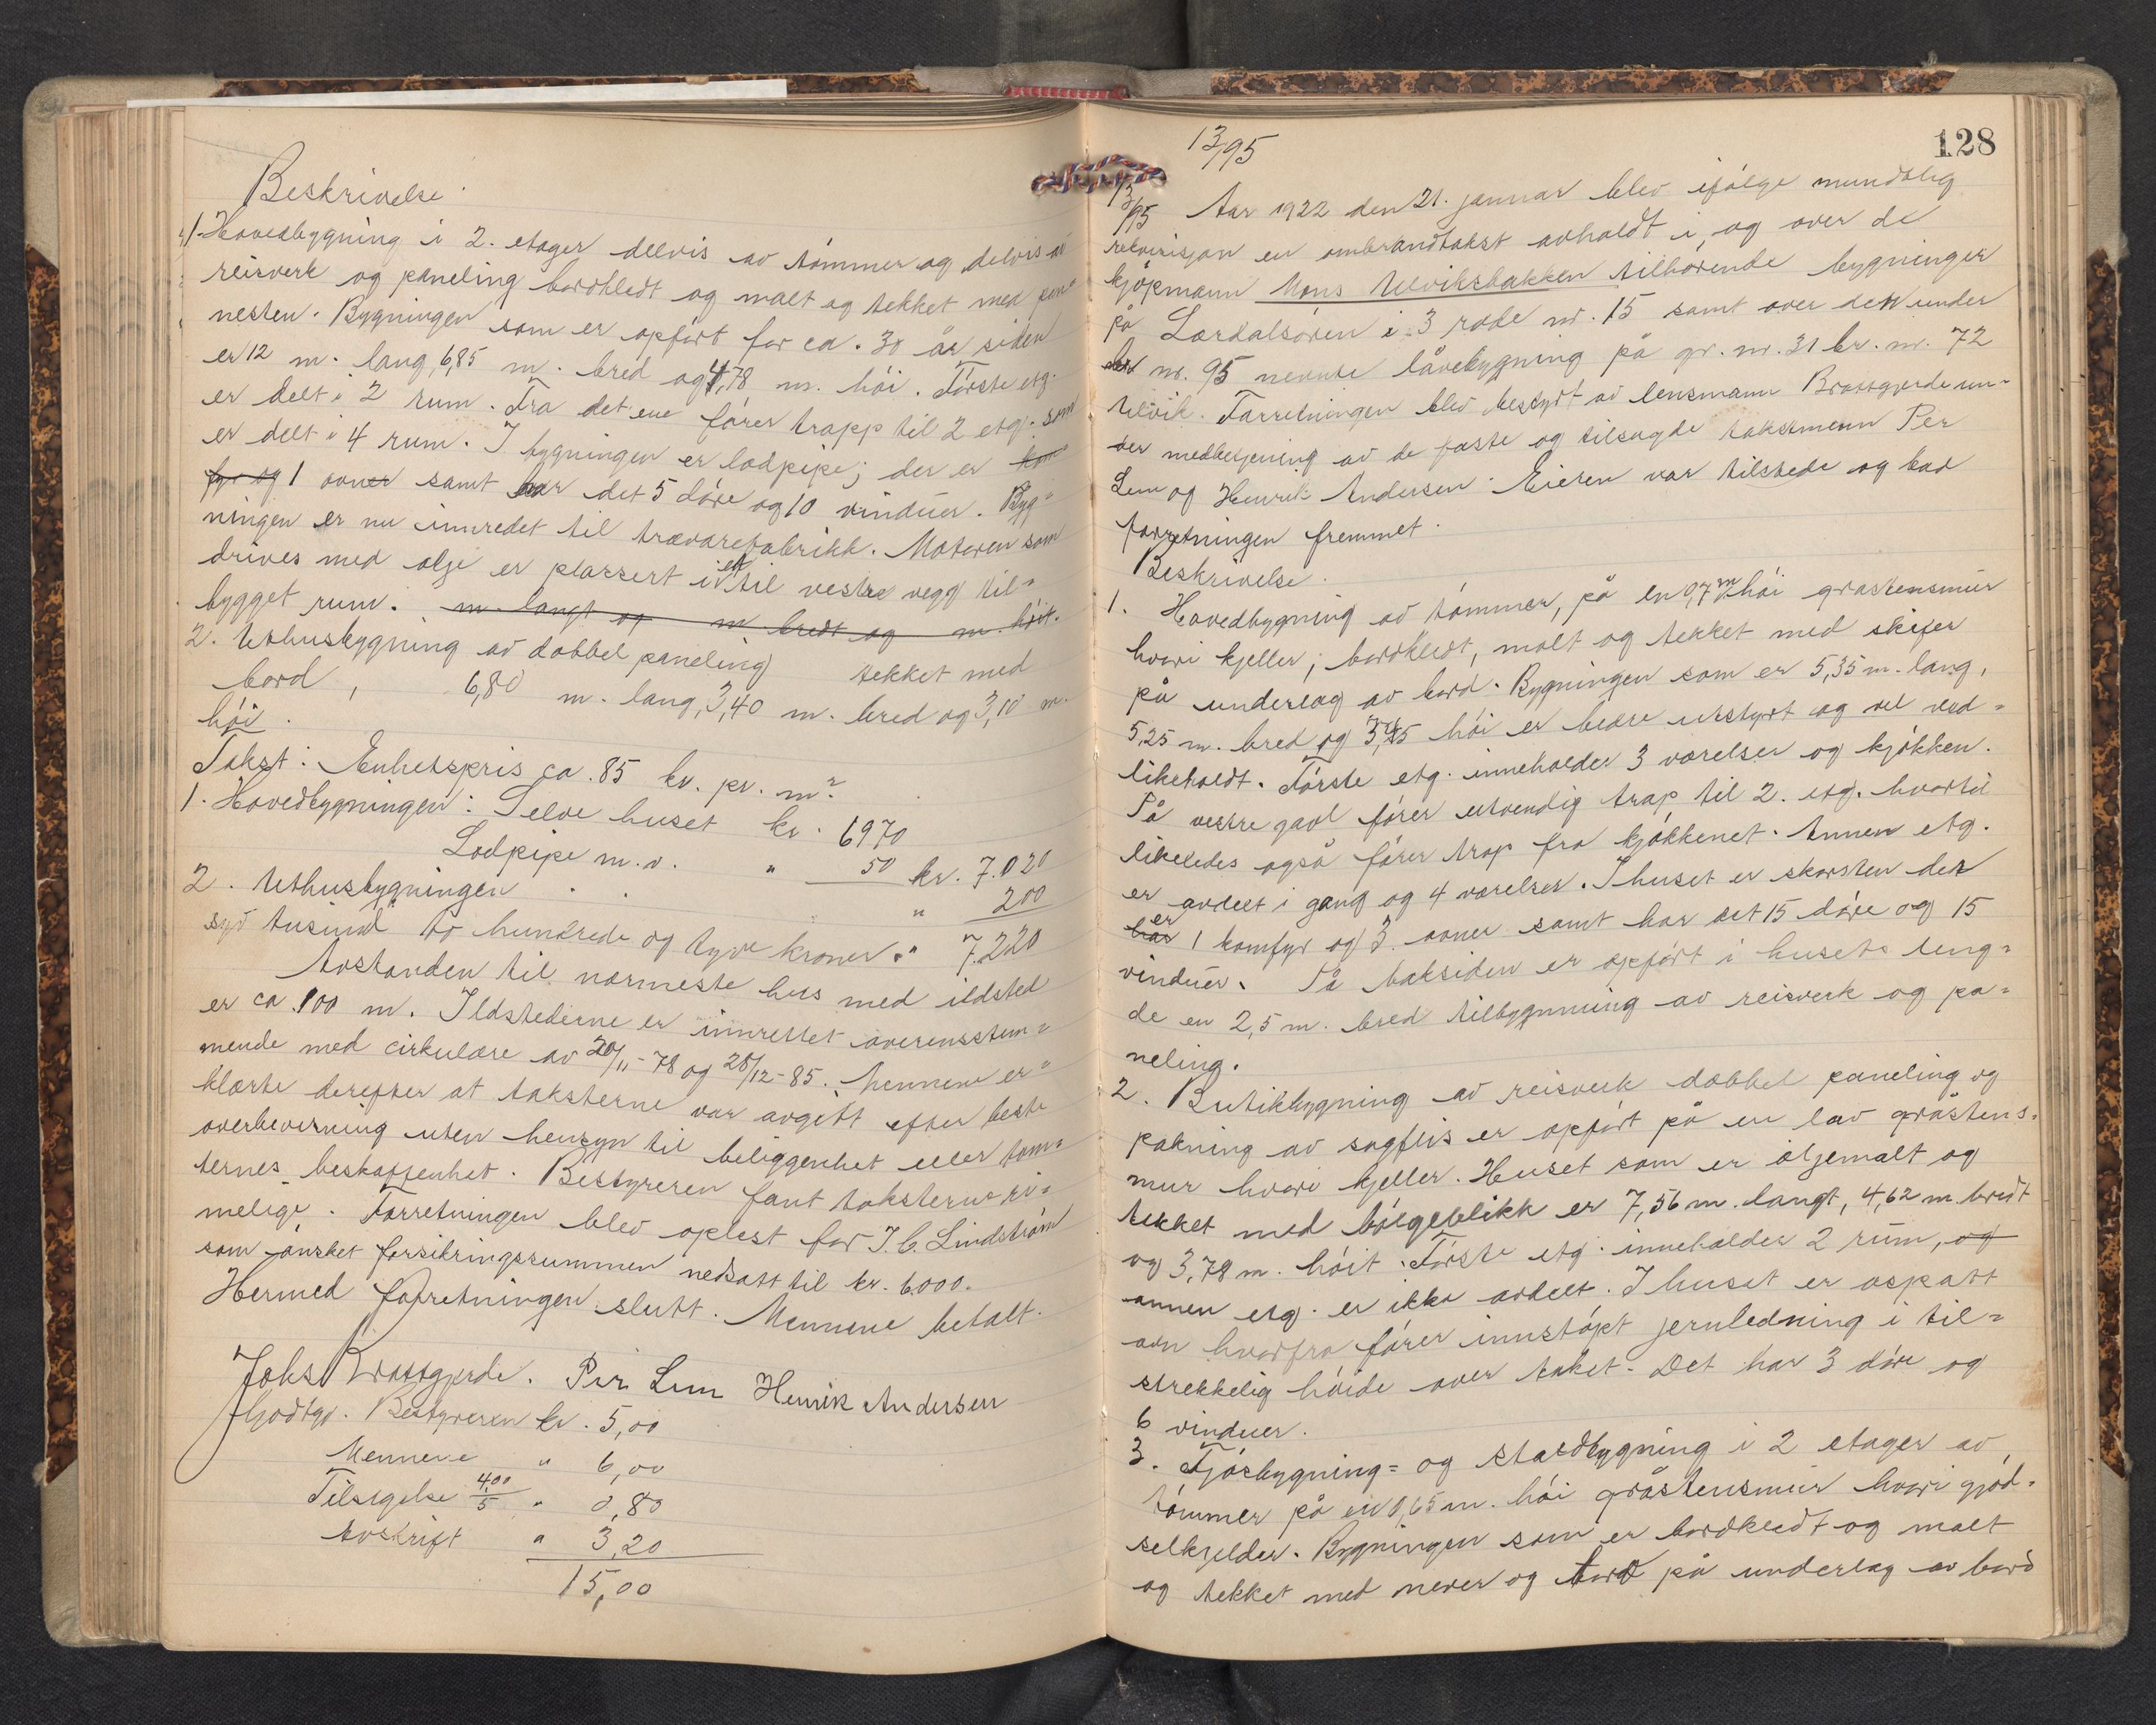 Beskrivelse.
1. Hovedbygning i 2. etager delvis av tömmer og delvis av
reisverk og paneling bordkledt og malt og tekket med pan-
nesten. Bygningen som er opfört for ca. 30 år siden
er 12 m. lang, 6,85 m. bred og 4,78 m. hói. Förste etg.
er delt i 2 rum. Fra det ene förer trapp til 2 etg. som
er delt i 4 rum. I bygningen er lodpipe; der er kom-
fyr og 1 ovner samt har det 5 döre og 10 vinduer. Byg-
ningen er nu innredet til trævarefabrikk. Motoren som
drives med olje er plassert i et til vestre vegg til-
bygget rum. m. langt og m bredt og m. höit.
2. Uthusbygning av dobbel paneling tekket med
bord, 6,80 m. lang, 3,40 m. bred og 3,10 m.
hói.
Takst: Enhetspris ca. 85 kr. pr. m²
1. Hovedbygningen: Selve huset kr. 6970
Lodpipe m.v. " 50 kr. 7.020
2. Uthusbygningen . . " 200
syv tusind to hundrede og tyve kroner " 7220
Avstanden til nærmeste hus med ildsted
er ca. 100 m. Ildstederne er innrettet overensstem-
mende med cirkulære av 20/11-78 og 28/12-85. Mennene er-
klærte derefter at taksterne var avgitt efter beste
overbevisning uten hensyn til beliggenhet eller tom-
ternes beskaffenhet. Bestyreren fant taksterne ri-
melige. Forretningen blev oplest for J. C. Lindström
som ónsket forsikringssummen nedsatt til kr. 6.000.
Hermed forretningen slutt. Mennene betalt.
Johs Brattgjerde. Per Lem Henrik Andersen
Godtgj. Bestyreren kr. 5,00
Mennene " 6,00
Tilsigelse 4,00/5 " 0,80
Avskrift " 3,20
15,00
13/95
128
13/95 Aar 1922 den 21. januar blev ifölge mundtlig
rekvisisjon en ombrandtakst avholdt i, og over de
kjöpmann Mons Ulviksbakken tilhörende bygninger
på Lærdalsören i 3 rode nr. 15 samt over den under
nr. 95 nevnte låvebygning på gr. nr. 31 br. nr. 72
Ulvik. Forretningen blev bestyrt av lensmann Brattgjerde un-
der medbetjening av de faste og tilsagde takstmenn Per
Lem og Henrik Andersen. Eieren var tilstede og bad
forretningen fremmet.
Beskrivelse.
1. Hovedbygning av tömmer, på en 0,97 m hói gråstensmur
hvori kjeller; bordkledt, malt og tekket med skifer
på underlag av bord. Bygningen som er 5,35 m. lang,
5,25 m. bred og hói er bedre utstyrt og vel ved-
likeholdt. Förste etg. inneholder 3 værelser og kjökken.
På vestre gavl förer utvendig trap til 2. etg. hvortil
likeledes også förer trap fra kjökkenet. Annen etg.
er avdelt i gang og 4 værelser. I huset er skorsten der
har er 1 komfyr og 3 ovner samt har det 15 döre og 15
vinduer. På baksiden er opfört i husets leng-
de en 2,5 m. bred tilbygnning av reisverk og pa-
neling.
2. Butikbygning av reisverk dobbel paneling og
pakning av sagflis er opfört på en lav gråstens-
mur hvori kjeller. Huset som er oljemalt og
tekket med bölgeblikk er 7,56 m. langt, 4,62 m. bredt
og 3,78 m. hóit. Förste etg. inneholder 2 rum, og
annen etg. er ikke avdelt. I huset er opsatt
ovn hvorfra förer innstöpt jernledning i til-
strekkelig höide over taket. Det har 3 döre og
6 vinduer.
3. Fjösbygning- og staldbygning i 2 etager av
tömmer på en 0,65 m. hói gråstensmur hvori gjöd-
selkjelder. Bygningen som er bordkledt og malt
og tekket med never og torv på underlag av bord